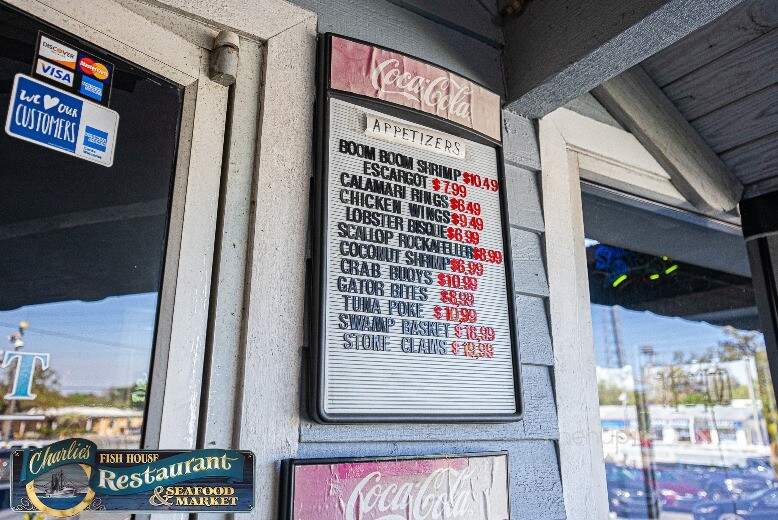 DISCOVER
VISA
MasterCard
WE ♥ OUR
CUSTOMERS
Coca-Cola
APPETIZERS
BOOM BOOM SHRIMP $10.49
ESCARGOT $7.99
CALAMARI RINGS $6.49
CHICKEN WINGS $9.49
LOBSTER BISQUE $6.99
SCALLOP ROCKAFELLER $8.99
COCONUT SHRIMP $6.99
CRAB BUOYS $10.99
GATOR BITES $8.99
TUNA POKE $10.99
SWAMP BASKET $16.99
STONE CLAWS $19.99
T
Charlie's
FISH HOUSE
Restaurant
& SEAFOOD
MARKET
Coca-Cola